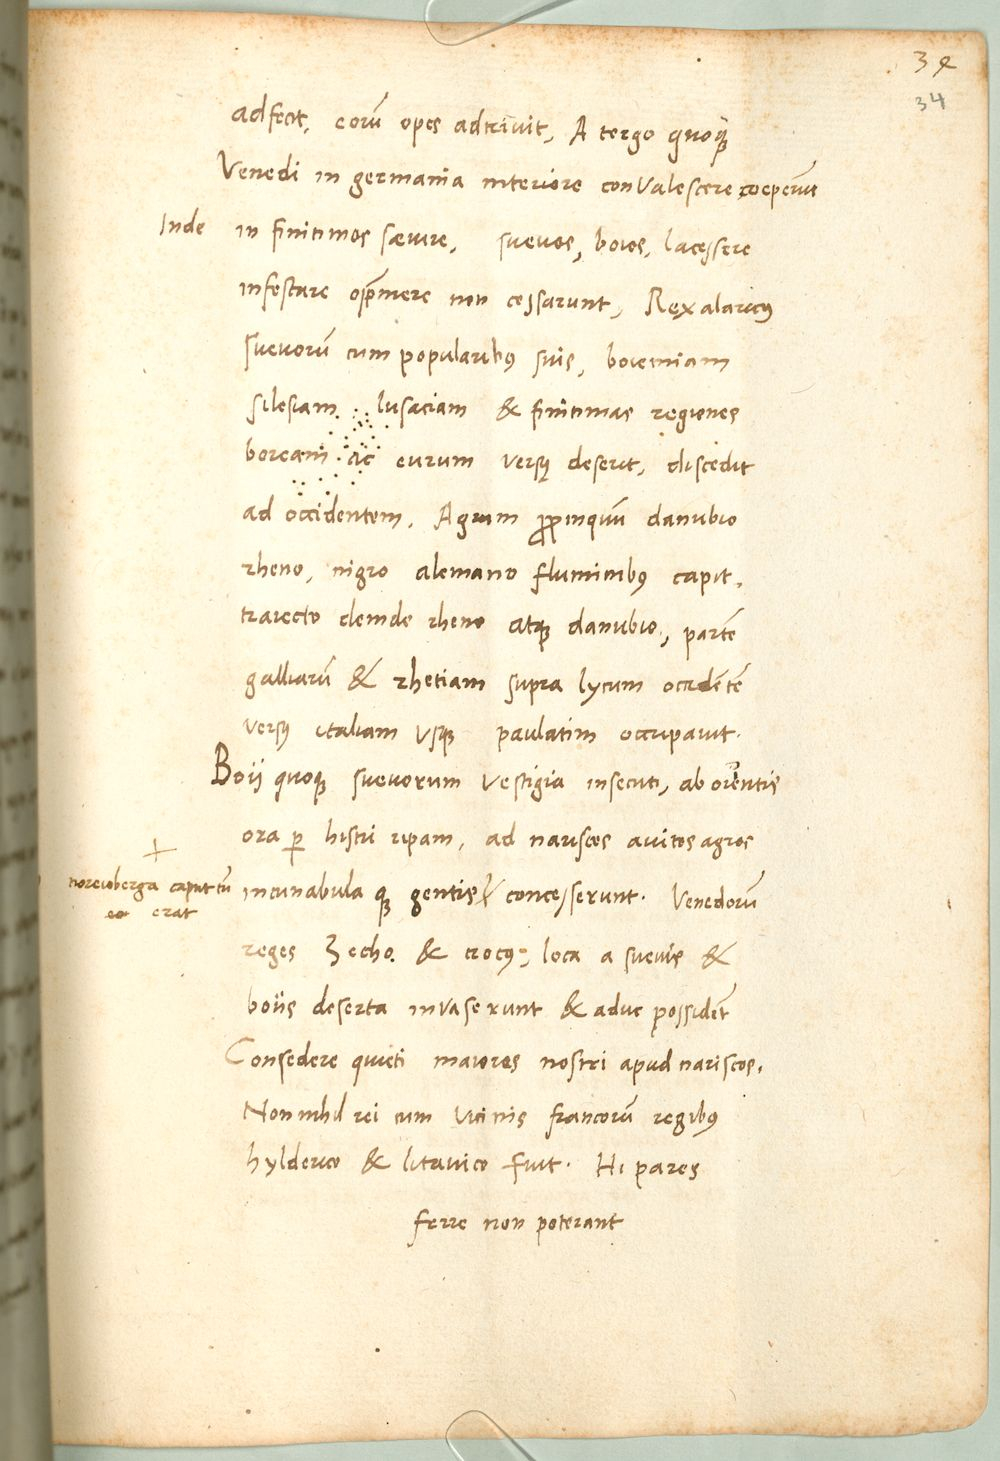 34
34
adfecit, eorū opes adtrivit, A tergo quoqꝫ
Venedi in germania interiore convalescere coeperūt
Inde in finitimos sævire, suevos, boios, lacessere
infestare opp̄mere non cessarunt, Rex alaricꝰ
suevorū cum popularibꝰ suis, boiemiam
silesiam lusaciam & finitimas regiones
boream ac eurum versꝰ deserit, discedit
ad occidentem, Agrum ꝓpinquū danubio
rheno, nigro alemano fluminibꝰ capit,
traiecto deinde rheno atqꝫ danubio, partē
galliarū & rhetiam supra lycum occidētē
versꝰ italiam usqꝫ paulatim occupavit.
Boii quoqꝫ suevorum vestigia insecuti, ab orientis
ora ꝑ histri ripam, ad nariscos avitos agros
noreioberga caput tū
eo erat
incunabula qꝫ gentis concesserunt. Venedorū
reges Zecho & crocꝰ, loca a suevis &
boiis deserta invaserunt & aduc possidēt
Consedere quieti maiores nostri apud nariscos,
Non nihil rei cum vicinis francorū regibꝰ
hylderico & litavico fuit. Hi pares
ferre non poterant